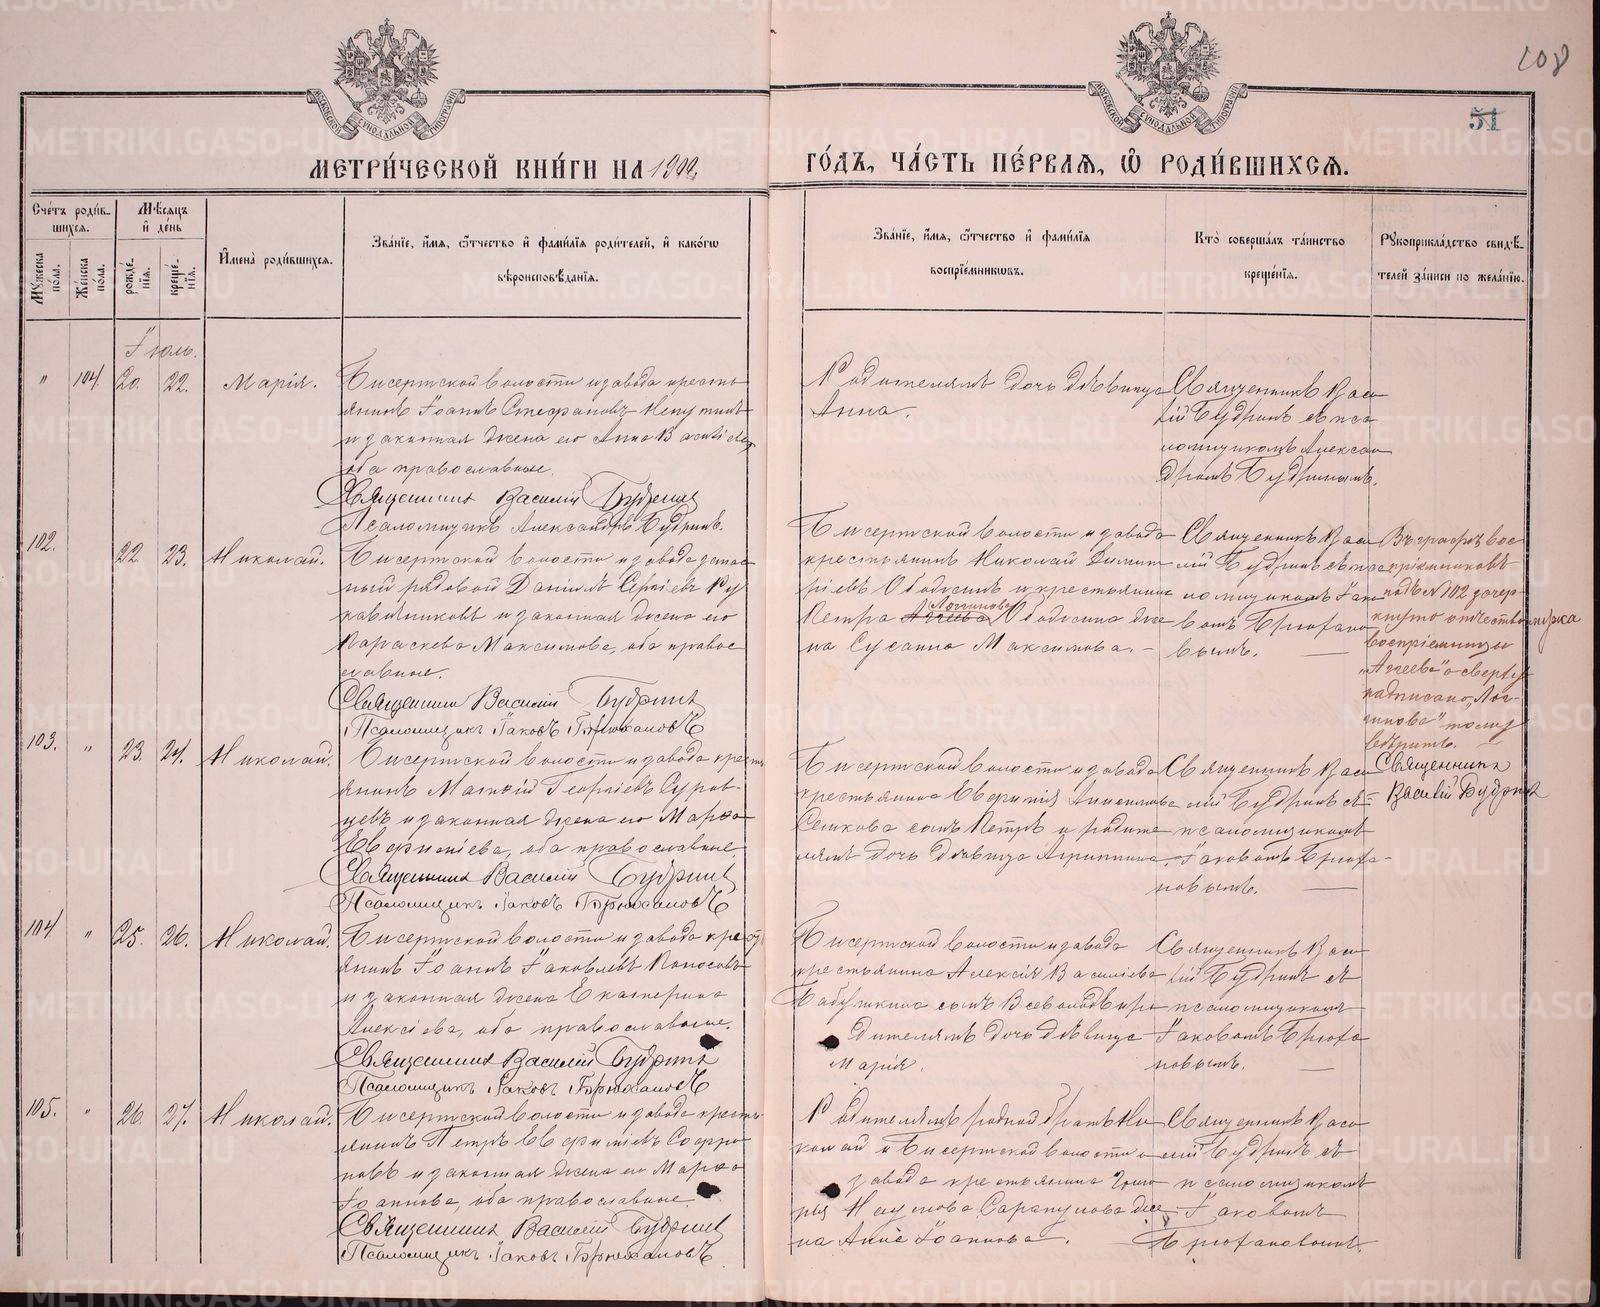 108
51
МЕТРИ́ЧЕСКОЙ КНИ́ГИ НА 1902
ГО́ДЪ, ЧА́СТЬ ПЕ́РВАЯ, Ѽ РОДИ́ВШИХСЯ.
Сче́тъ роди́вшихся.
Мꙋ́жеска по́ла.
Же́нска по́ла.
Мѣ́сяцъ и҆ де́нь
рожде́нїя.
креще́нїя.
И҆мена̀ роди́вшихся.
Зва́нїе, и҆́мя, ѻ҆́тчество и҆ фами́лїя роди́телей, и҆ како́гѡ вѣроисповѣ́данїя.
Зва́нїе, и҆́мя, ѻ҆́тчество и҆ фами́лїя воспрїе́мникѡвъ.
Кто̀ соверша́лъ та́инство креще́нїя.
Рꙋкоприкла́дство свидѣ́телей за́писи по жела́нїю.
Іюль.
" 104. 20. 22. Марія.
Бисертской волости и завода кресть-
янинъ Іоаннъ Стефановъ
и законная жена его Анна
оба православные.
Священникъ Василій Будринъ
Псаломщикъ Александръ Будринъ.
Родителямъ дочь дѣвица
Анна.
Священникъ Васи-
лій Будринъ съ пса-
ломщикомъ Алексан-
дромъ Будринымъ.
102. 22. 23. Николай.
Бисертской волости и завода запас-
ный рядовой Даніилъ Сергіевъ Ру-
кавишниковъ и законная жена его
Параскева Максимова, оба право-
славные.
Священникъ Василій Будринъ
Псаломщикъ Іаковъ Брюхановъ
Бисертской волости и завода
крестьянинъ Николай Димит-
ріевъ Ободосинъ и крестьянина
Петра Агеева Логгинова Ободосина же-
на Сусанна Максимова. –
Священникъ Васи-
лій Будринъ съ пса-
ломщикомъ Іако-
вомъ Брюхано-
вымъ.
Въ графѣ вос-
пріемниковъ
подъ № 102 зачер-
кнуто отчество мужа
воспріемницы
„Агеева" а сверху
надписано „Лог-
гинова" тому
вѣрить.
Священникъ
Василій Будринъ
103. " 23. 24. Николай.
Бисертской волости и завода кресть-
янинъ Матвій Георгіевъ Суров-
цевъ и законная жена его Марѳа
Евфиміева, оба православные.
Священникъ Василій Будринъ
Псаломщикъ Іаковъ Брюхановъ
Бисертской волости и завода
крестьянина Евфимія
сынъ Петръ и родите-
лямъ дочь дѣвица Агриппина.
Священникъ Васи-
лій Будринъ съ
псаломщикомъ
Іаковомъ Брюха-
новымъ.
104 " 25. 26. Николай.
Бисертской волости и завода кресть-
янинъ Іоаннъ Іаковлевъ Колосовъ
и законная жена Екатерина
Алексіева, оба православные.
Священникъ Василій Будринъ
Псаломщикъ Іаковъ Брюхановъ
Бисертской волости и завода
крестьянина Алексія Василіева
Бабушкина сынъ Всеволодъ и ро-
дителямъ дочь дѣвица
Марія.
Священникъ Васи-
лій Будринъ съ
псаломщикомъ
Іаковомъ Брюха-
новымъ.
105. " 26. 27. Николай.
Бисертской волости и завода кресть-
янинъ Петръ Евфиміевъ Софро-
новъ и законная жена его Марѳа
Іоаннова, оба православные.
Священникъ Василій Будринъ
Псаломщикъ Іаковъ Брюхановъ
Родителямъ родной братъ Ни-
колай и Бисертской волости и
завода крестьянина
Наумова Сарапулова же-
на Іоаннова.
Священникъ Васи-
лій Будринъ съ
псаломщикомъ
Іаковомъ
Брюхановымъ.
METRIKI.GASO-URAL.RU